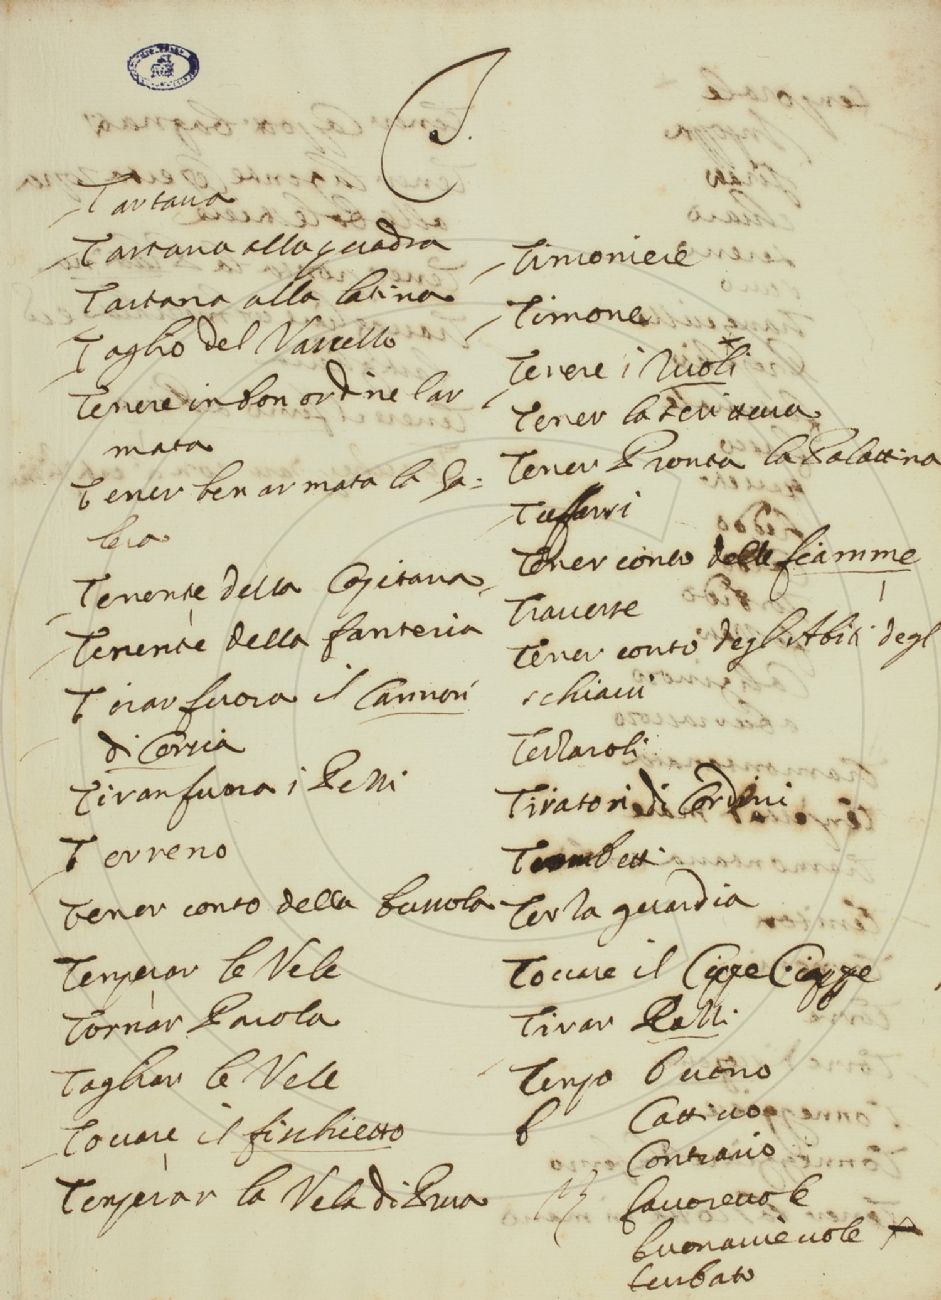 T.
Tartana
Tartana alla quadra
Tartana alla latina
Taglio del Vascello
Tenere in bon ordine lar
mata
Tener ben armata la Ga-
lera
Tenente della Capitana
Tenente della fanteria
Tirar fuora il Cannon
di Corsia
Tirar fuora i
Terreno
Tener conto della bussola
Temperar le Vele
Tornar Parola
Tagliar le Vele
Toccare il fischietto
Temperar la Vela di Prua
Timoniere
Timone
Tenere i Ruoli
Tener la scrittura
Tener Pronta la Palattina
Tener conto delle fiamme
Traverse
Tener conto degl'Abiti degl
schiavi
Terzaroli
Tiratori di Cordini
Trombetti
Terza guardia
Toccare il
Tirar
Tempo buono
Cattivo
Contrario
favorevole
buonacievole
turbato